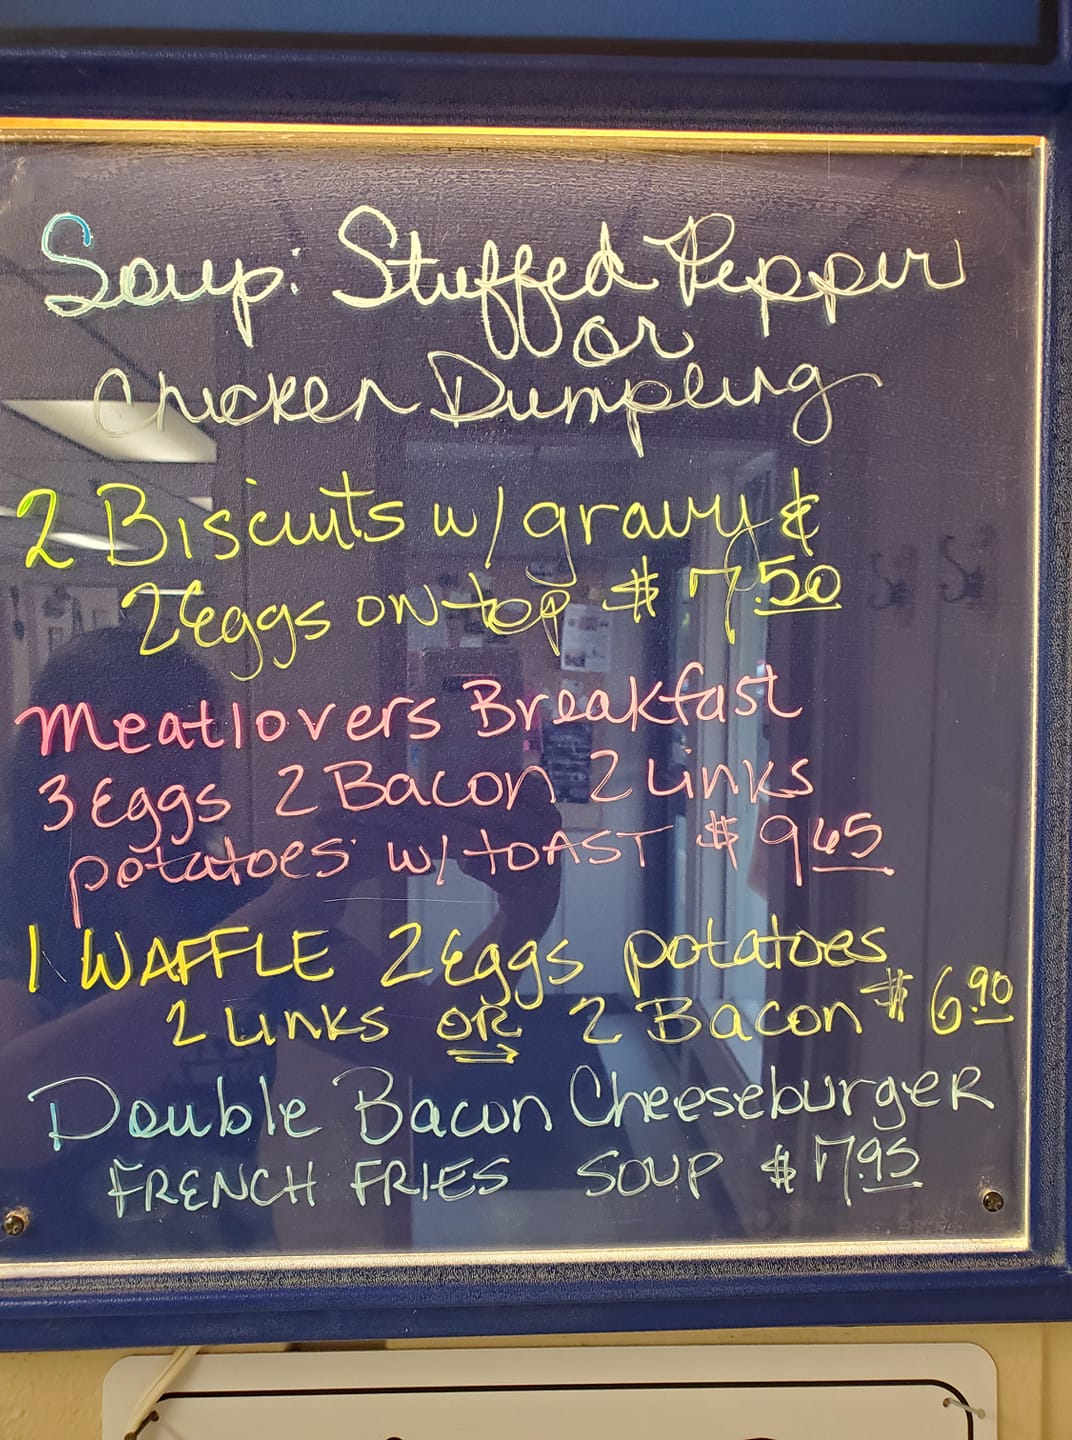 Soup: Stuffed Pepper
or
Chicken Dumpling
2 Biscuits w/ gravy &
2 Eggs on top $7.50
Meatlovers Breakfast
3 Eggs 2 Bacon 2 Links
potatoes w/ toAST $9 65
1 WAFFLE 2 Eggs potatoes
2 LINKS OR 2 Bacon $6.90
Double Bacon CheeseburgER
FRENCH FRIES SOUP $7.95